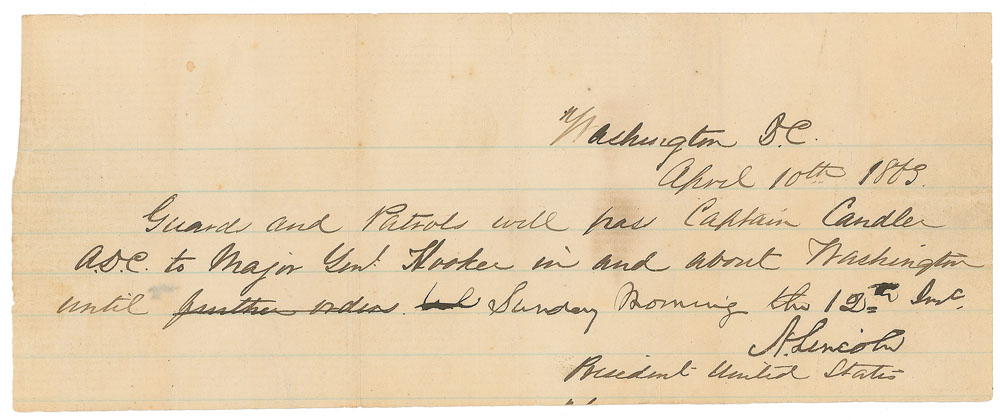 Washington D.C.
April 10th 1863.
Guards and Patrols will pass Captain Candler
A.D.C. to Major Genl. Hooker in and about Washington
until further orders. Sunday Morning the 12th Inst.
A. Lincoln
President United States